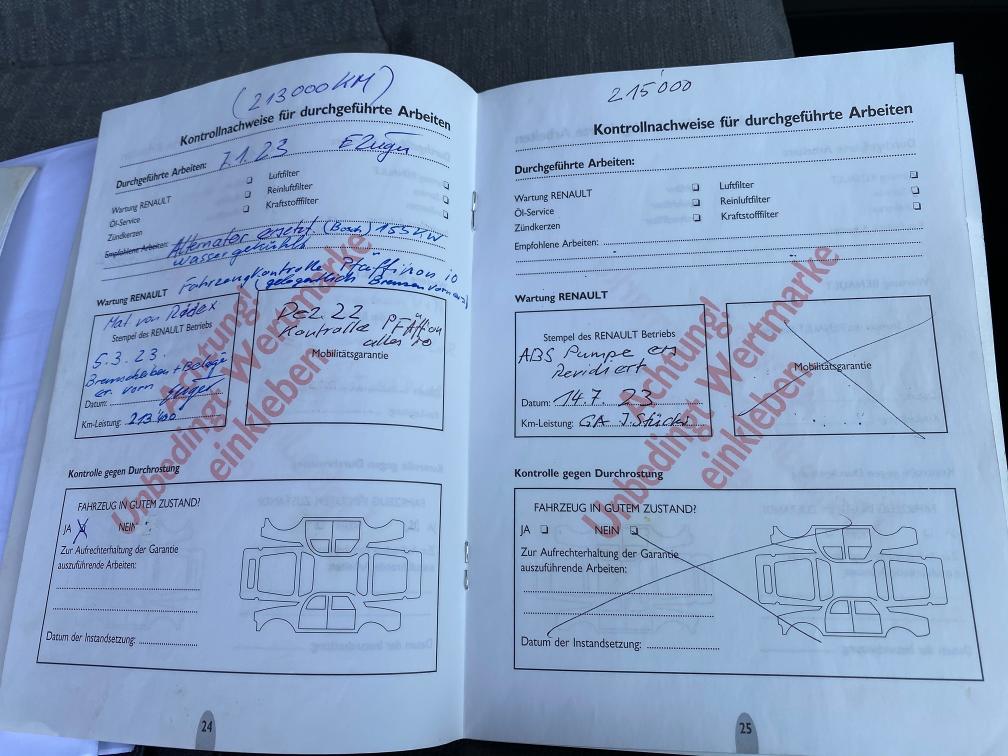 (213000 KM)
Kontrollnachweise für durchgeführte Arbeiten
Durchgeführte Arbeiten: 7.1.23
Wartung RENAULT
Öl-Service
Zündkerzen
Luftfilter
Reinluftfilter
Kraftstofffilter
Empfohlene Arbeiten: Alternator ersetzt (Bosch) 155 KW
wassergekühlt
Fahrzeugkontrolle Pfäffikon io
(gelegentlich Bremsen vorn
Wartung RENAULT
Mat von
Stempel des RENAULT Betriebs
5.3.23.
Bremsscheiben + Beläge
er. vorn
Datum:
Km-Leistung: 213'400
Dez. 22
Kontrolle
alles io
Mobilitätsgarantie
Achtung!
Unbedingt Wertmarke
einkleben
Kontrolle gegen Durchrostung
FAHRZEUG IN GUTEM ZUSTAND?
JA NEIN
Zur Aufrechterhaltung der Garantie
auszuführende Arbeiten:
Datum der Instandsetzung:
24
215'000
Kontrollnachweise für durchgeführte Arbeiten
Durchgeführte Arbeiten:
Wartung RENAULT
Öl-Service
Zündkerzen
Luftfilter
Reinluftfilter
Kraftstofffilter
Empfohlene Arbeiten:
Wartung RENAULT
Stempel des RENAULT Betriebs
ABS Pumpe
Revidiert
Datum: 14.7.23
Km-Leistung:
Mobilitätsgarantie
Achtung!
Unbedingt Wertmarke
einkleben
Kontrolle gegen Durchrostung
FAHRZEUG IN GUTEM ZUSTAND?
JA NEIN
Zur Aufrechterhaltung der Garantie
auszuführende Arbeiten:
Datum der Instandsetzung:
25